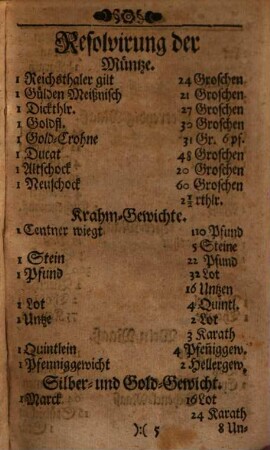 Resolvirung der
Müntze.
1 Reichsthaler gilt 24 Groschen
1 Gülden Meißnisch 21 Groschen
1 Dickthlr. 27 Groschen
1 Goldfl. 30 Groschen
1 Gold-Crohne 31 Gr. 6 pf.
1 Ducat 48 Groschen
1 Altschock 20 Groschen
1 Neuschock 60 Groschen
2½ rthlr.
Krahm-Gewichte.
1 Centner wiegt 110 Pfund
5 Steine
1 Stein 22 Pfund
1 Pfund 32 Lot
16 Untzen
1 Lot 4 Quintl.
1 Untze 2 Lot
3 Karath
1 Quintlein 4 Pfeñiggew.
1 Pfenniggewicht 2 Hellergew.
Silber- und Gold-Gewicht.
1 Marck 16 Lot
24 Karath
):( 5 8 Un-